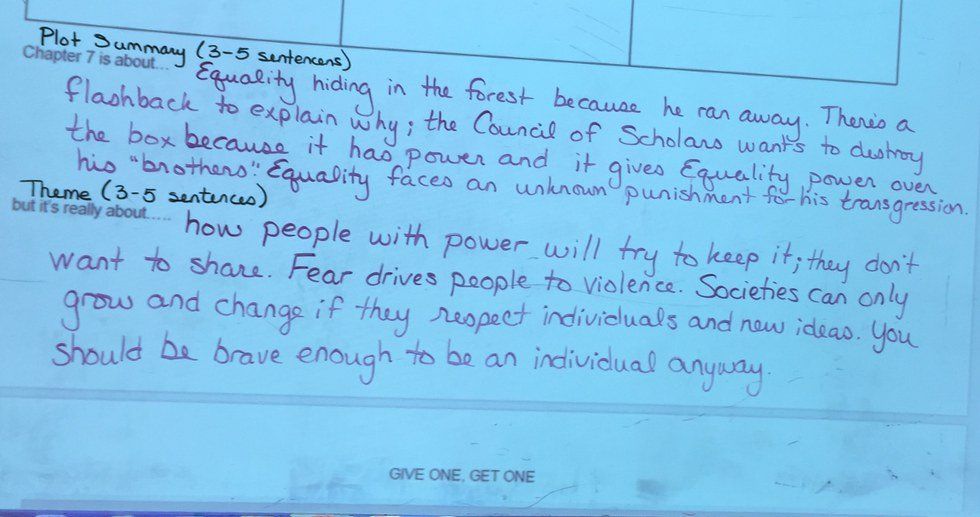 Plot Summary (3-5 sentencens)
Chapter 7 is about...
Equality hiding in the forest because he ran away. There's a
flashback to explain why; the Council of Scholars wants to destroy
the box because it has power and it gives Equality power over
his "brothers". Equality faces an unknown punishment for his transgression.
Theme (3-5 sentences)
but it's really about.....
how people with power will try to keep it; they don't
want to share. Fear drives people to violence. Societies can only
grow and change if they respect individuals and new ideas. You
should be brave enough to be an individual anyway.
GIVE ONE, GET ONE